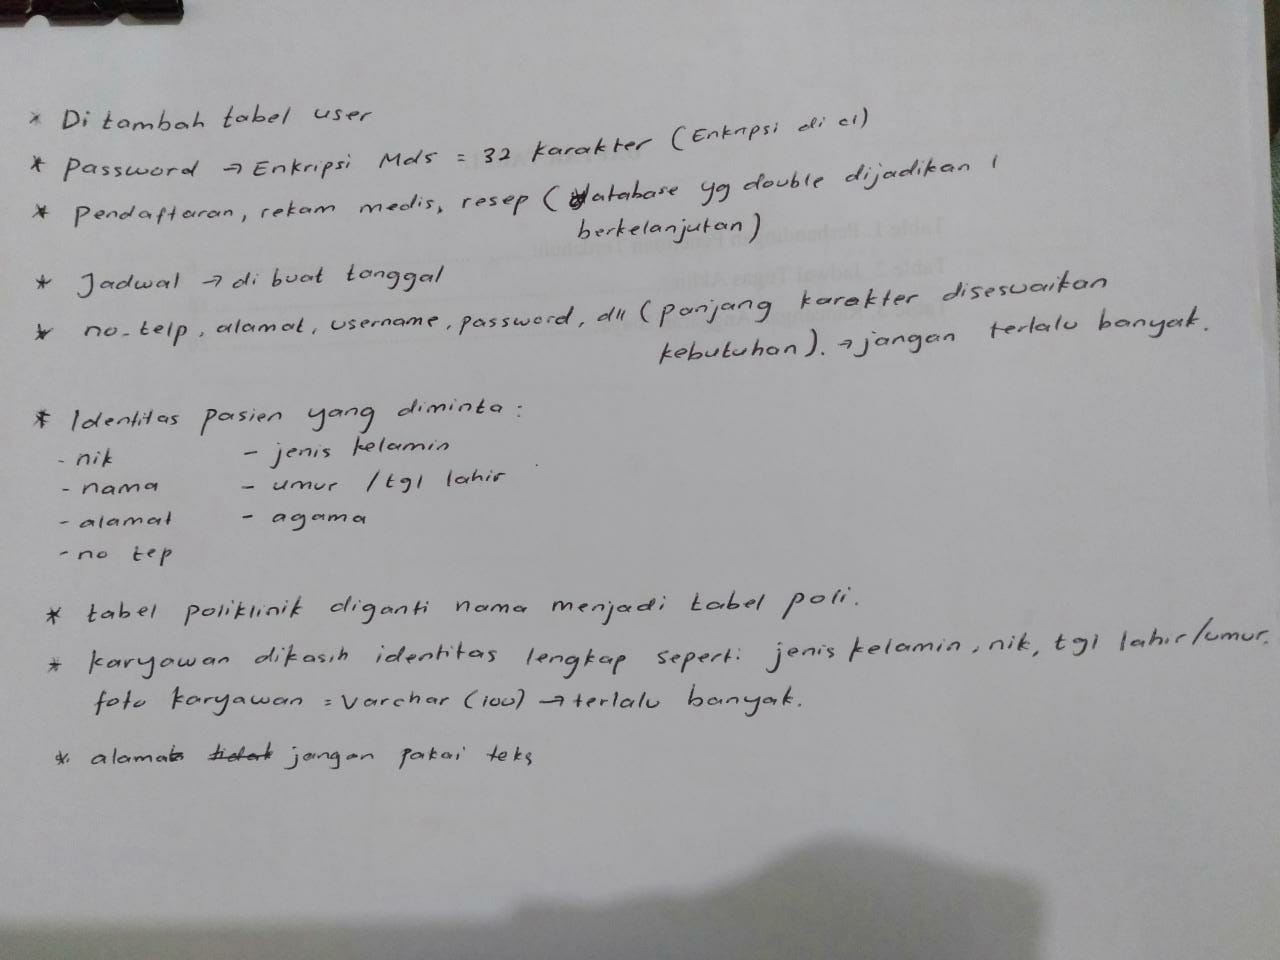 * Di tambah tabel user
* Password → Enkripsi Md5 = 32 karakter (Enkripsi di ci)
* Pendaftaran, rekam medis, resep (database yg double dijadikan 1
berkelanjutan)
* Jadwal → di buat tanggal
* no-telp, alamat, username, password, dll (panjang karakter disesuaikan
kebutuhan). → jangan terlalu banyak.
* Identitas pasien yang diminta :
- nik - jenis kelamin
- nama - umur / tgl lahir
- alamat - agama
- no tep
* tabel poliklinik diganti nama menjadi tabel poli.
* karyawan dikasih identitas lengkap seperti jenis kelamin, nik, tgl lahir/umur.
foto karyawan = varchar (100) → terlalu banyak.
* alamat tidak jangan pakai teks